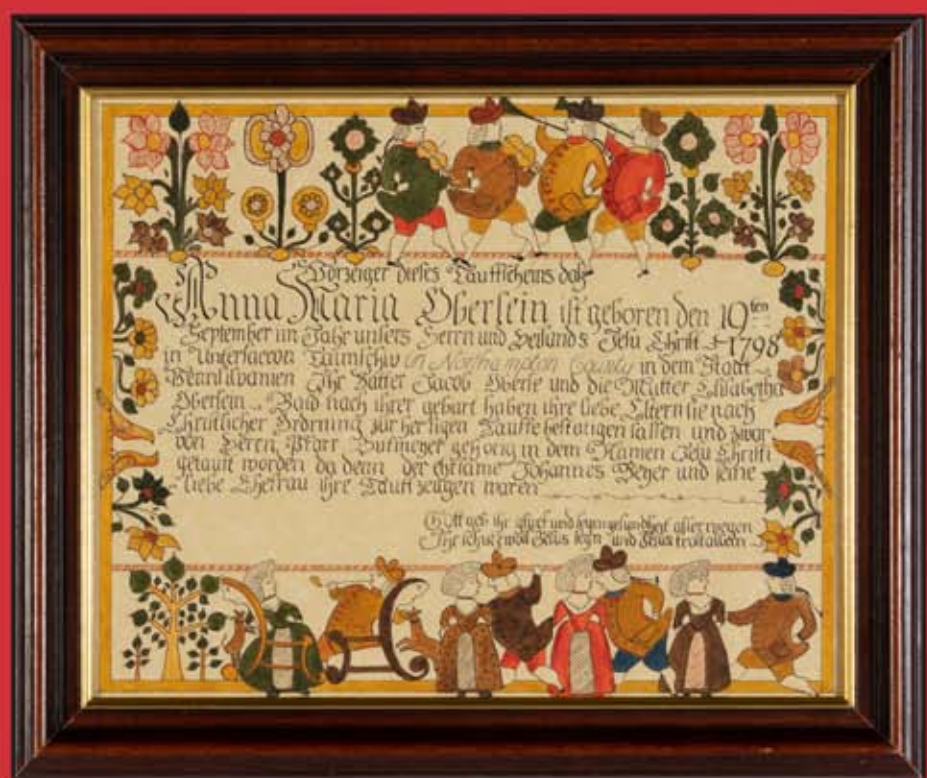 Vorzeiger dieses Tauffscheins daß
Anna Maria Oberlein ist geboren den 19ten
September im Jahr unsers Herrn und Heilands Jesu Christi 1798
in Untersacon Taunschiv in Northampton County in dem Staat
Pennsilvanien Ihr Vatter Jacob Oberle und die Mutter Elisabetha
Oberlein Baid nach ihrer geburt haben ihre liebe Eltern sie nach
Christlicher Ordnung zur heiligen Tauffe befördern lassen und zwar
von Herrn Pfarr gehörig in dem Namen Jesu Christi
getauft worden da denn der ehrsame Johannes Beyer und seine
liebe Ehefrau ihre Tauff zeugen waren
Gott geb ihr glück und gesundheit aller wegen
Jesus und Jesus trost allein